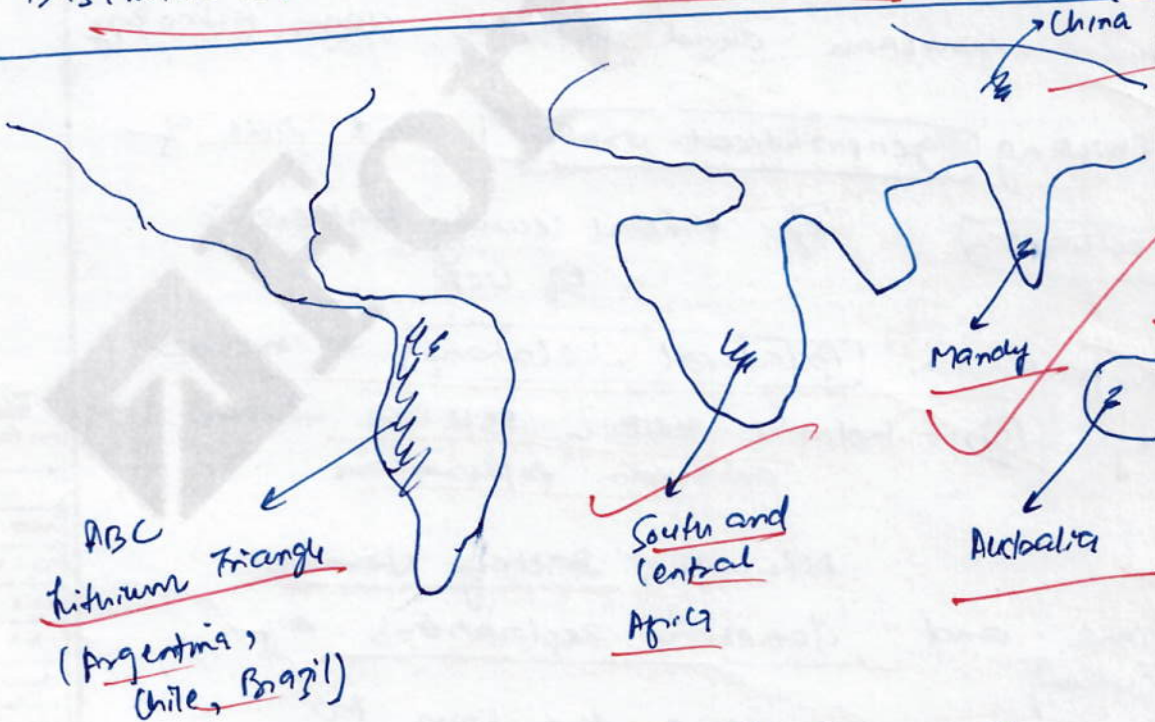 China
Mandy
ABC
Lithium Triangle
(Argentina,
Chile, Brazil)
South and
Central
Africa
Australia
For